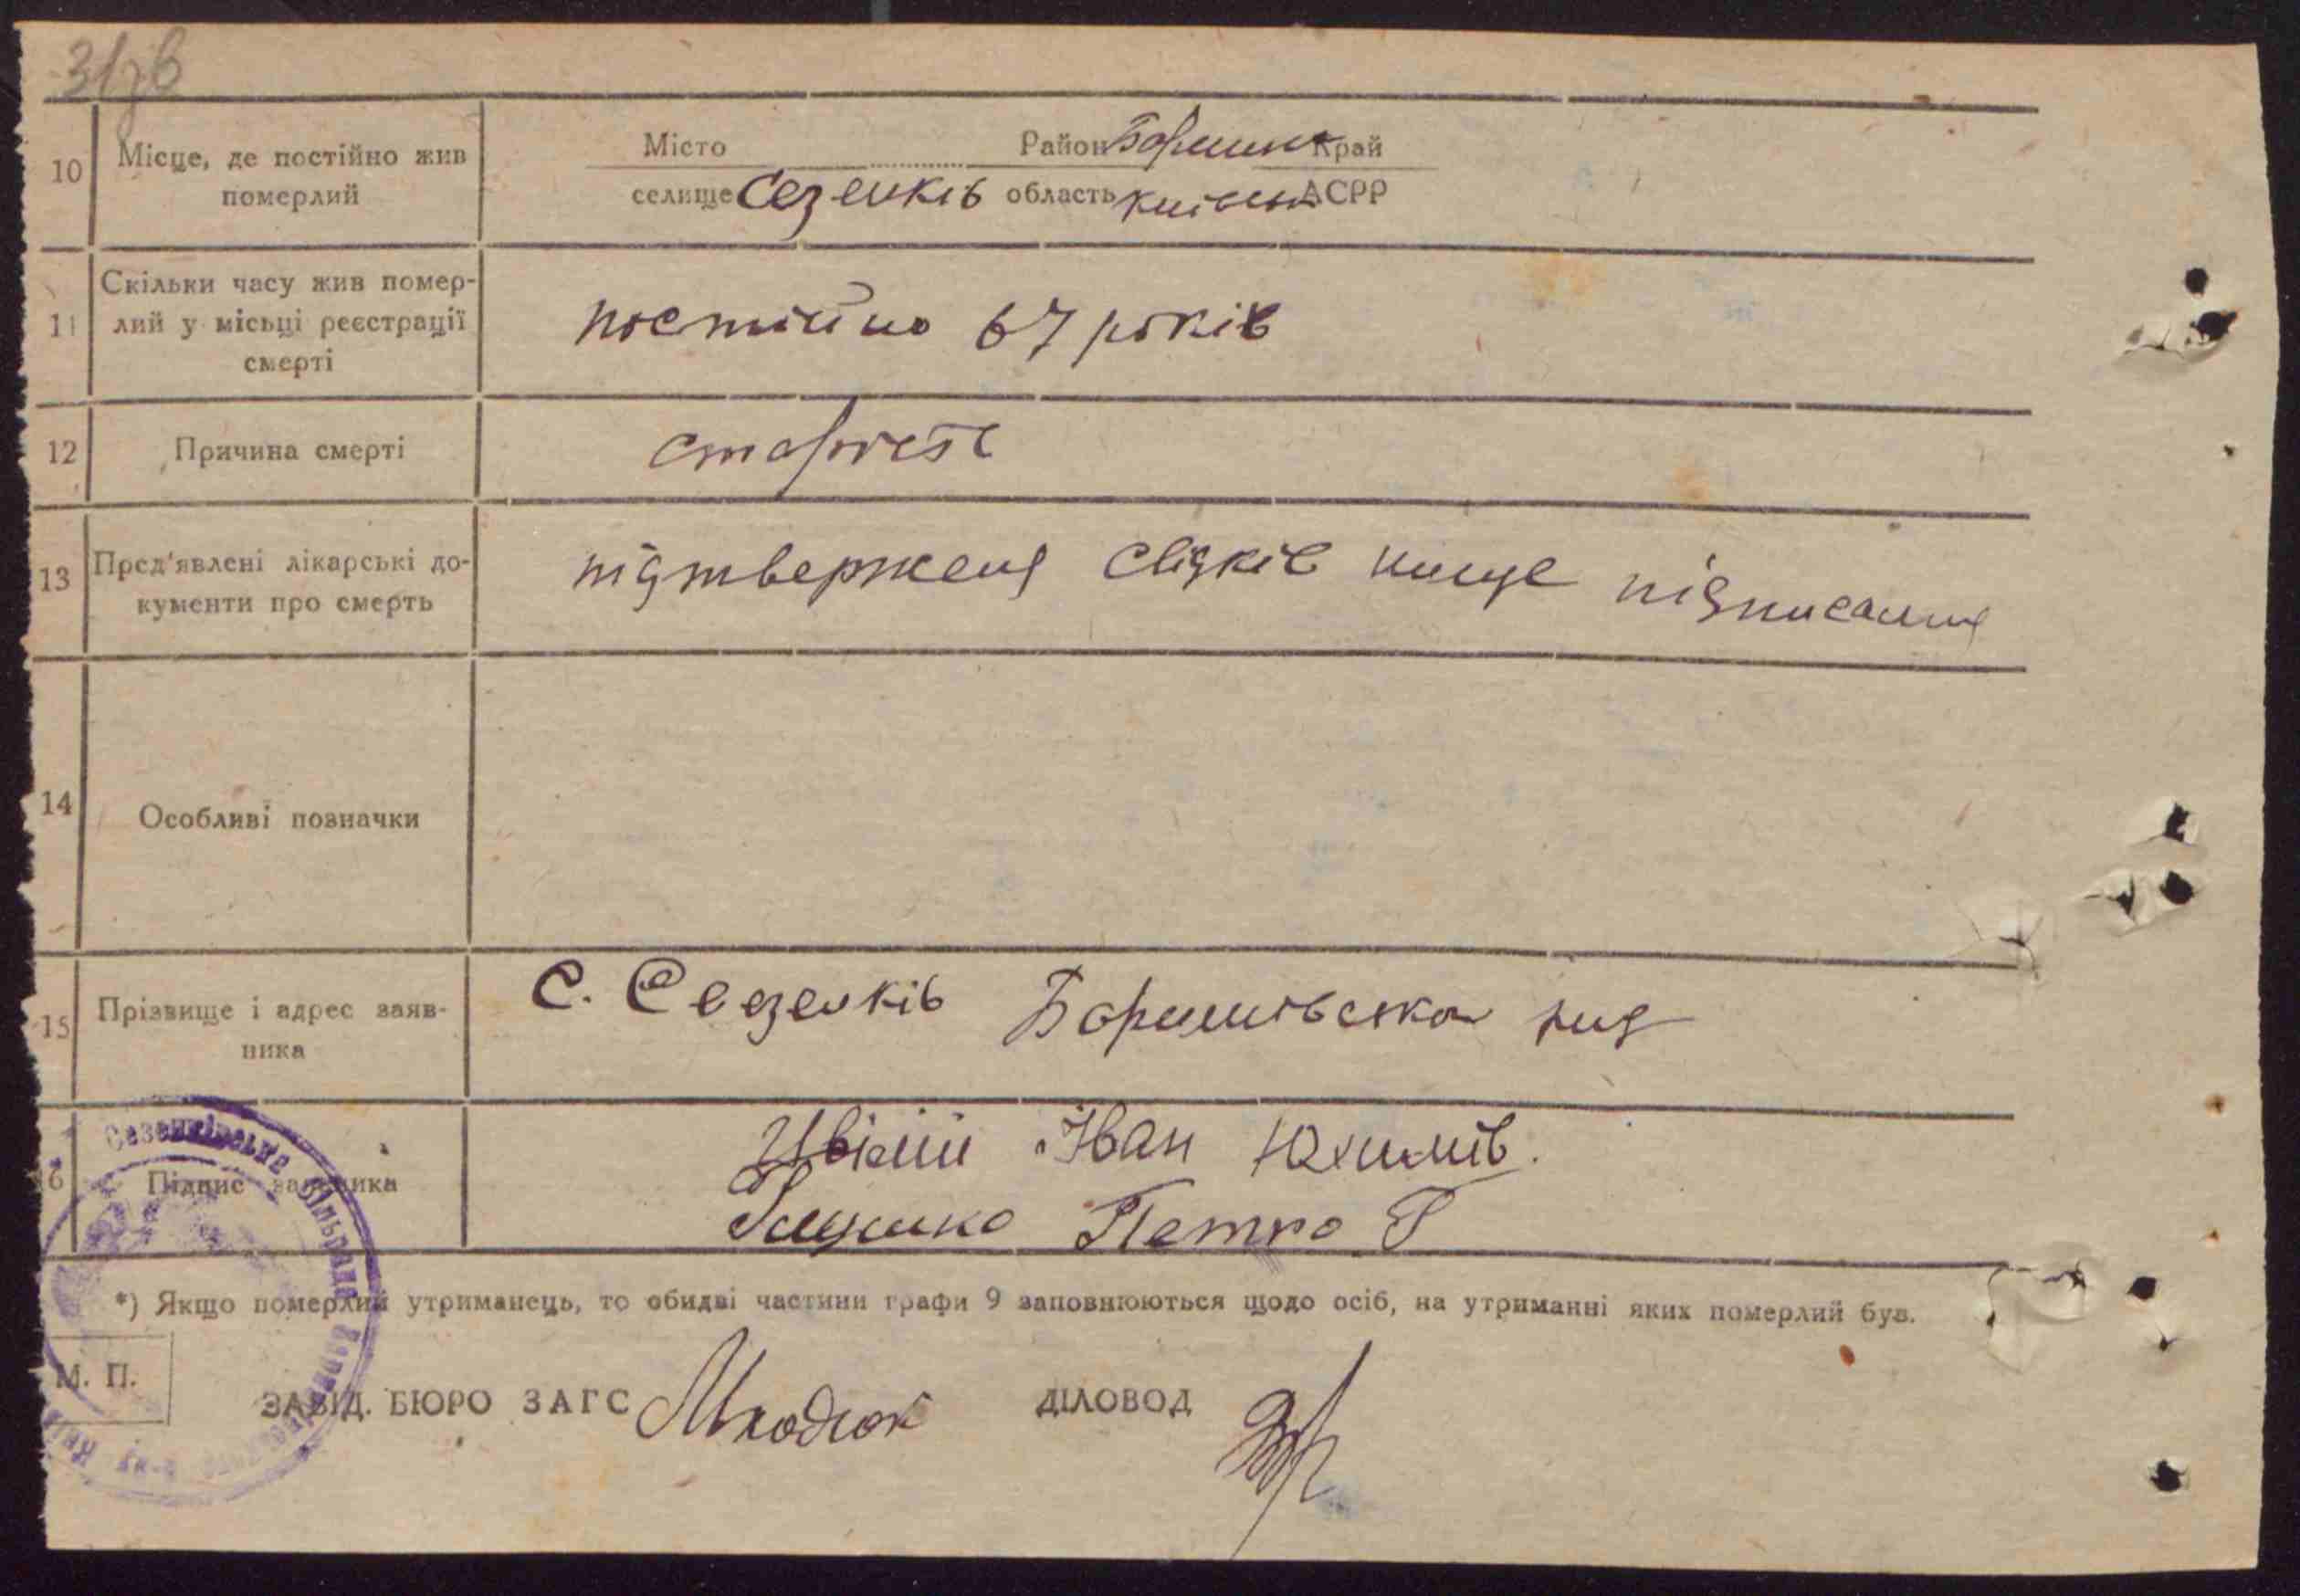 31зв
10 Місце, де постійно жив померлий
Місто Район Баришів Край
селище Сезенків область Київськ АСРР
11 Скільки часу жив помер-
лий у місьці реєстрації
смерті
постійно 67 років
12 Причина смерті
старість
13 Пред'явлені лікарські до-
кументи про смерть
підтверженя свідків нище підписання
14 Особливі позначки
15 Прізвище і адрес заяв-
ника
С. Сезенків Баришівська
6 Підпис заявника
Іван Юхимів.
Петро Г
*) Якщо померлий утриманець, то обидві частини графи 9 заповнюються щодо осіб, на утриманні яких померлий був.
М. П.
ЗАВІД. БЮРО ЗАГС ДІЛОВОД
Сезенківська сільрада